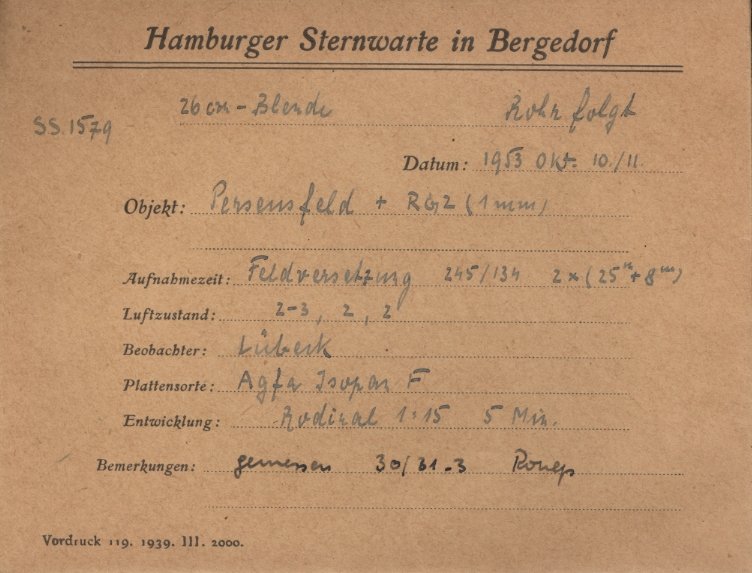 Hamburger Sternwarte in Bergedorf
26 cm - Blende Rohr folgt
SS.1579
Datum: 1953 Okt. 10./11.
Objekt: Perseusfeld + RG2 (1mm)
Aufnahmezeit: Feldversetzung 245/134 2x(25m + 8m)
Luftzustand: 2-3, 2, 2
Beobachter: Lübeck
Plattensorte: Agfa Isopan F
Entwicklung: Rodinal 1:15 5 Min.
Bemerkungen: gemessen 30/31-3
Vordruck 119. 1939. III. 2000.